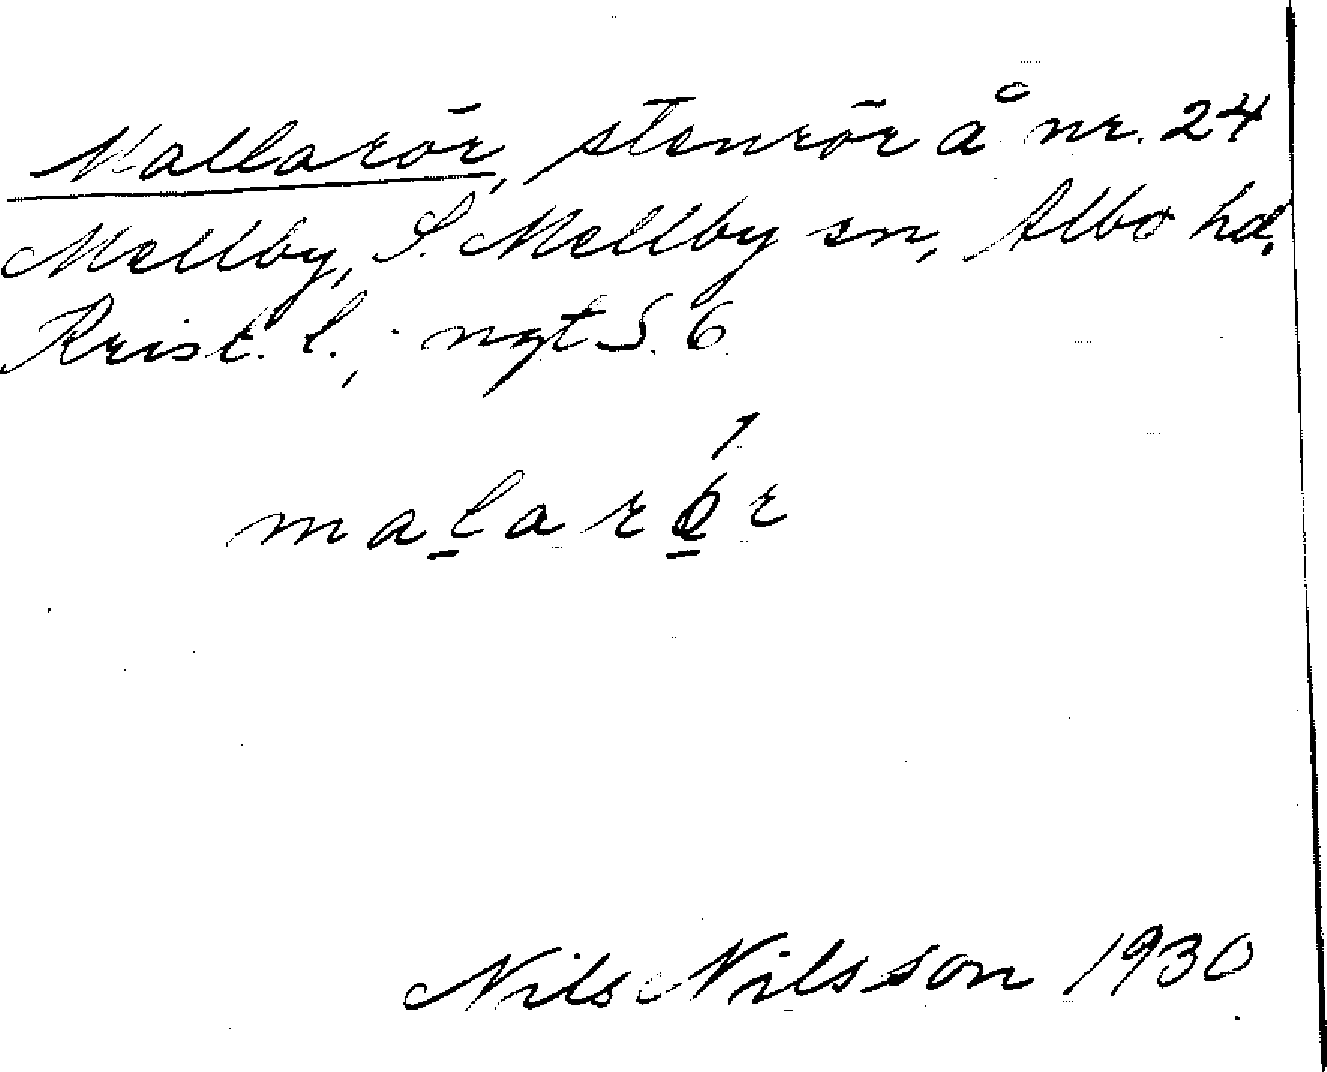 Mallarör, stenrör å nr. 24
Mellby, S. Mellby sn, Albo hd,
Krist. l.; ngt S. 6.
malarör
Nils Nilsson 1930